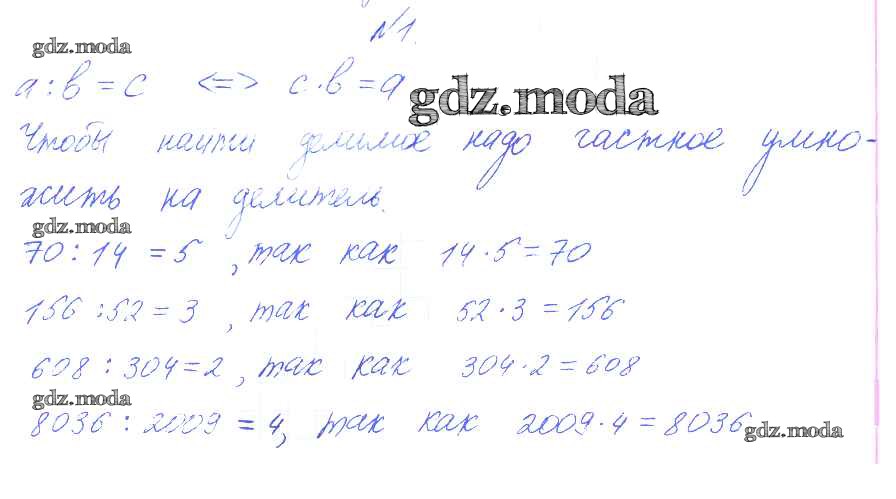 №1.
gdz.moda
a : b = c <=> c · b = a
gdz.moda
Чтобы найти делимое надо частное умно-
жить на делитель.
gdz.moda
70 : 14 = 5 , так как 14 · 5 = 70
156 : 52 = 3 , так как 52 · 3 = 156
608 : 304 = 2 , так как 304 · 2 = 608
gdz.moda
8036 : 2009 = 4, так как 2009 · 4 = 8036
gdz.moda